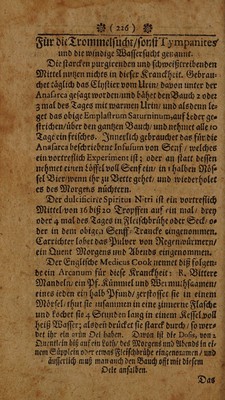 ( 226 )
Für die Trommelsucht / sonst Tympanites
und die windige Wassersucht genannt.
Die starcken purgirenden und schweißtreibenden
Mittel nutzen nichts in dieser Kranckheit. Gebrau-
chet täglich das Clystier vom Urin / davon unter der
Anasarca gesaget worden und bähet den Bauch 2 oder
3 mal des Tages mit warmen Urin / und alsdenn le-
get das obige Emplastrum Saturninum, auf Leder ge-
strichen / über den gantzen Bauch / und nehmet alle 10
Tage ein frisches. Innerlich gebrauchet das für die
Anasarca beschriebene Infusum von Senf / welches
ein vortreflich Experiment ist; oder an statt dessen
nehmet einen löffel voll Senf ein / in 1 halben Mös-
sel Bier / wenn ihr zu Bette gehet / und wiederholet
es des Morgens nüchtern.
Der dulcificirte Spiritus Nitri ist ein vortreflich
Mittel / von 16 biß 20 Tropffen auf ein mal / drey
oder 4 mal des Tages in Fleischbrühe oder Sect / o-
der in dem obigen Senff-Trancke eingenommen.
Carrichter lobet das Pulver von Regenwürmern /
ein Quent Morgens und Abends eingenommen.
Der Englische Medicus Cook nennet diß folgen-
de ein Arcanum für diese Kranckheit: R. Bittere
Mandeln / ein Pf. Kümmel und Wermuthsaamen /
eines ieden ein halb Pfund / zerstosset sie in einem
Mörsel / thut sie zusammen in eine zinnerne Flasche
und kochet sie 4 Stunden lang in einem Kessel voll
heiß Wasser; alsden drücket sie starck durch / so wer-
det ihr ein grün Oel haben. Davon ist die Dosis, von 2
Quentlein biß auf ein Loth / des Morgens und Abends in ei-
nem Süpplein oder etwas Fleischbrühe eingenommen / und
äusserlich muß man auch den Bauch oft mit diesem
Oele ansalben.
Das